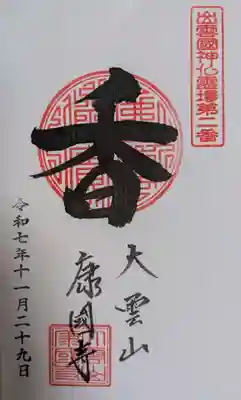 出雲國神仏霊場第二番
香
大雲山
康國寺
令和七年十一月二十九日